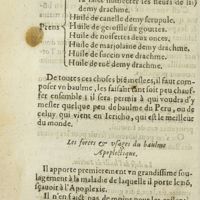 demy drachme.
Huile de canelle demy scrupule.
Huile de gerofle six gouttes.
Huile de noisettes deux onces.
Huile de marjolaine demy drachme.
Huile de succin vne drachme.
Huile de ruë demy drachme.
De toutes ces choses bie meslees, il faut com-
poser vn baulme, les faisant soit peu chauf-
fer ensemble: il sera permis à qui voudra d'y
mesler quelque peu de baulme du Peru, ou de
celuy qui vient en Iericho, qui est le meilleur
du monde.
Les forces & vsages du baulme
Apoplectique.
Il apporte premierement vn grandissime sou-
lagement à la maladie de laquelle il porte le nō,
sçauoir à l'Apoplexie.